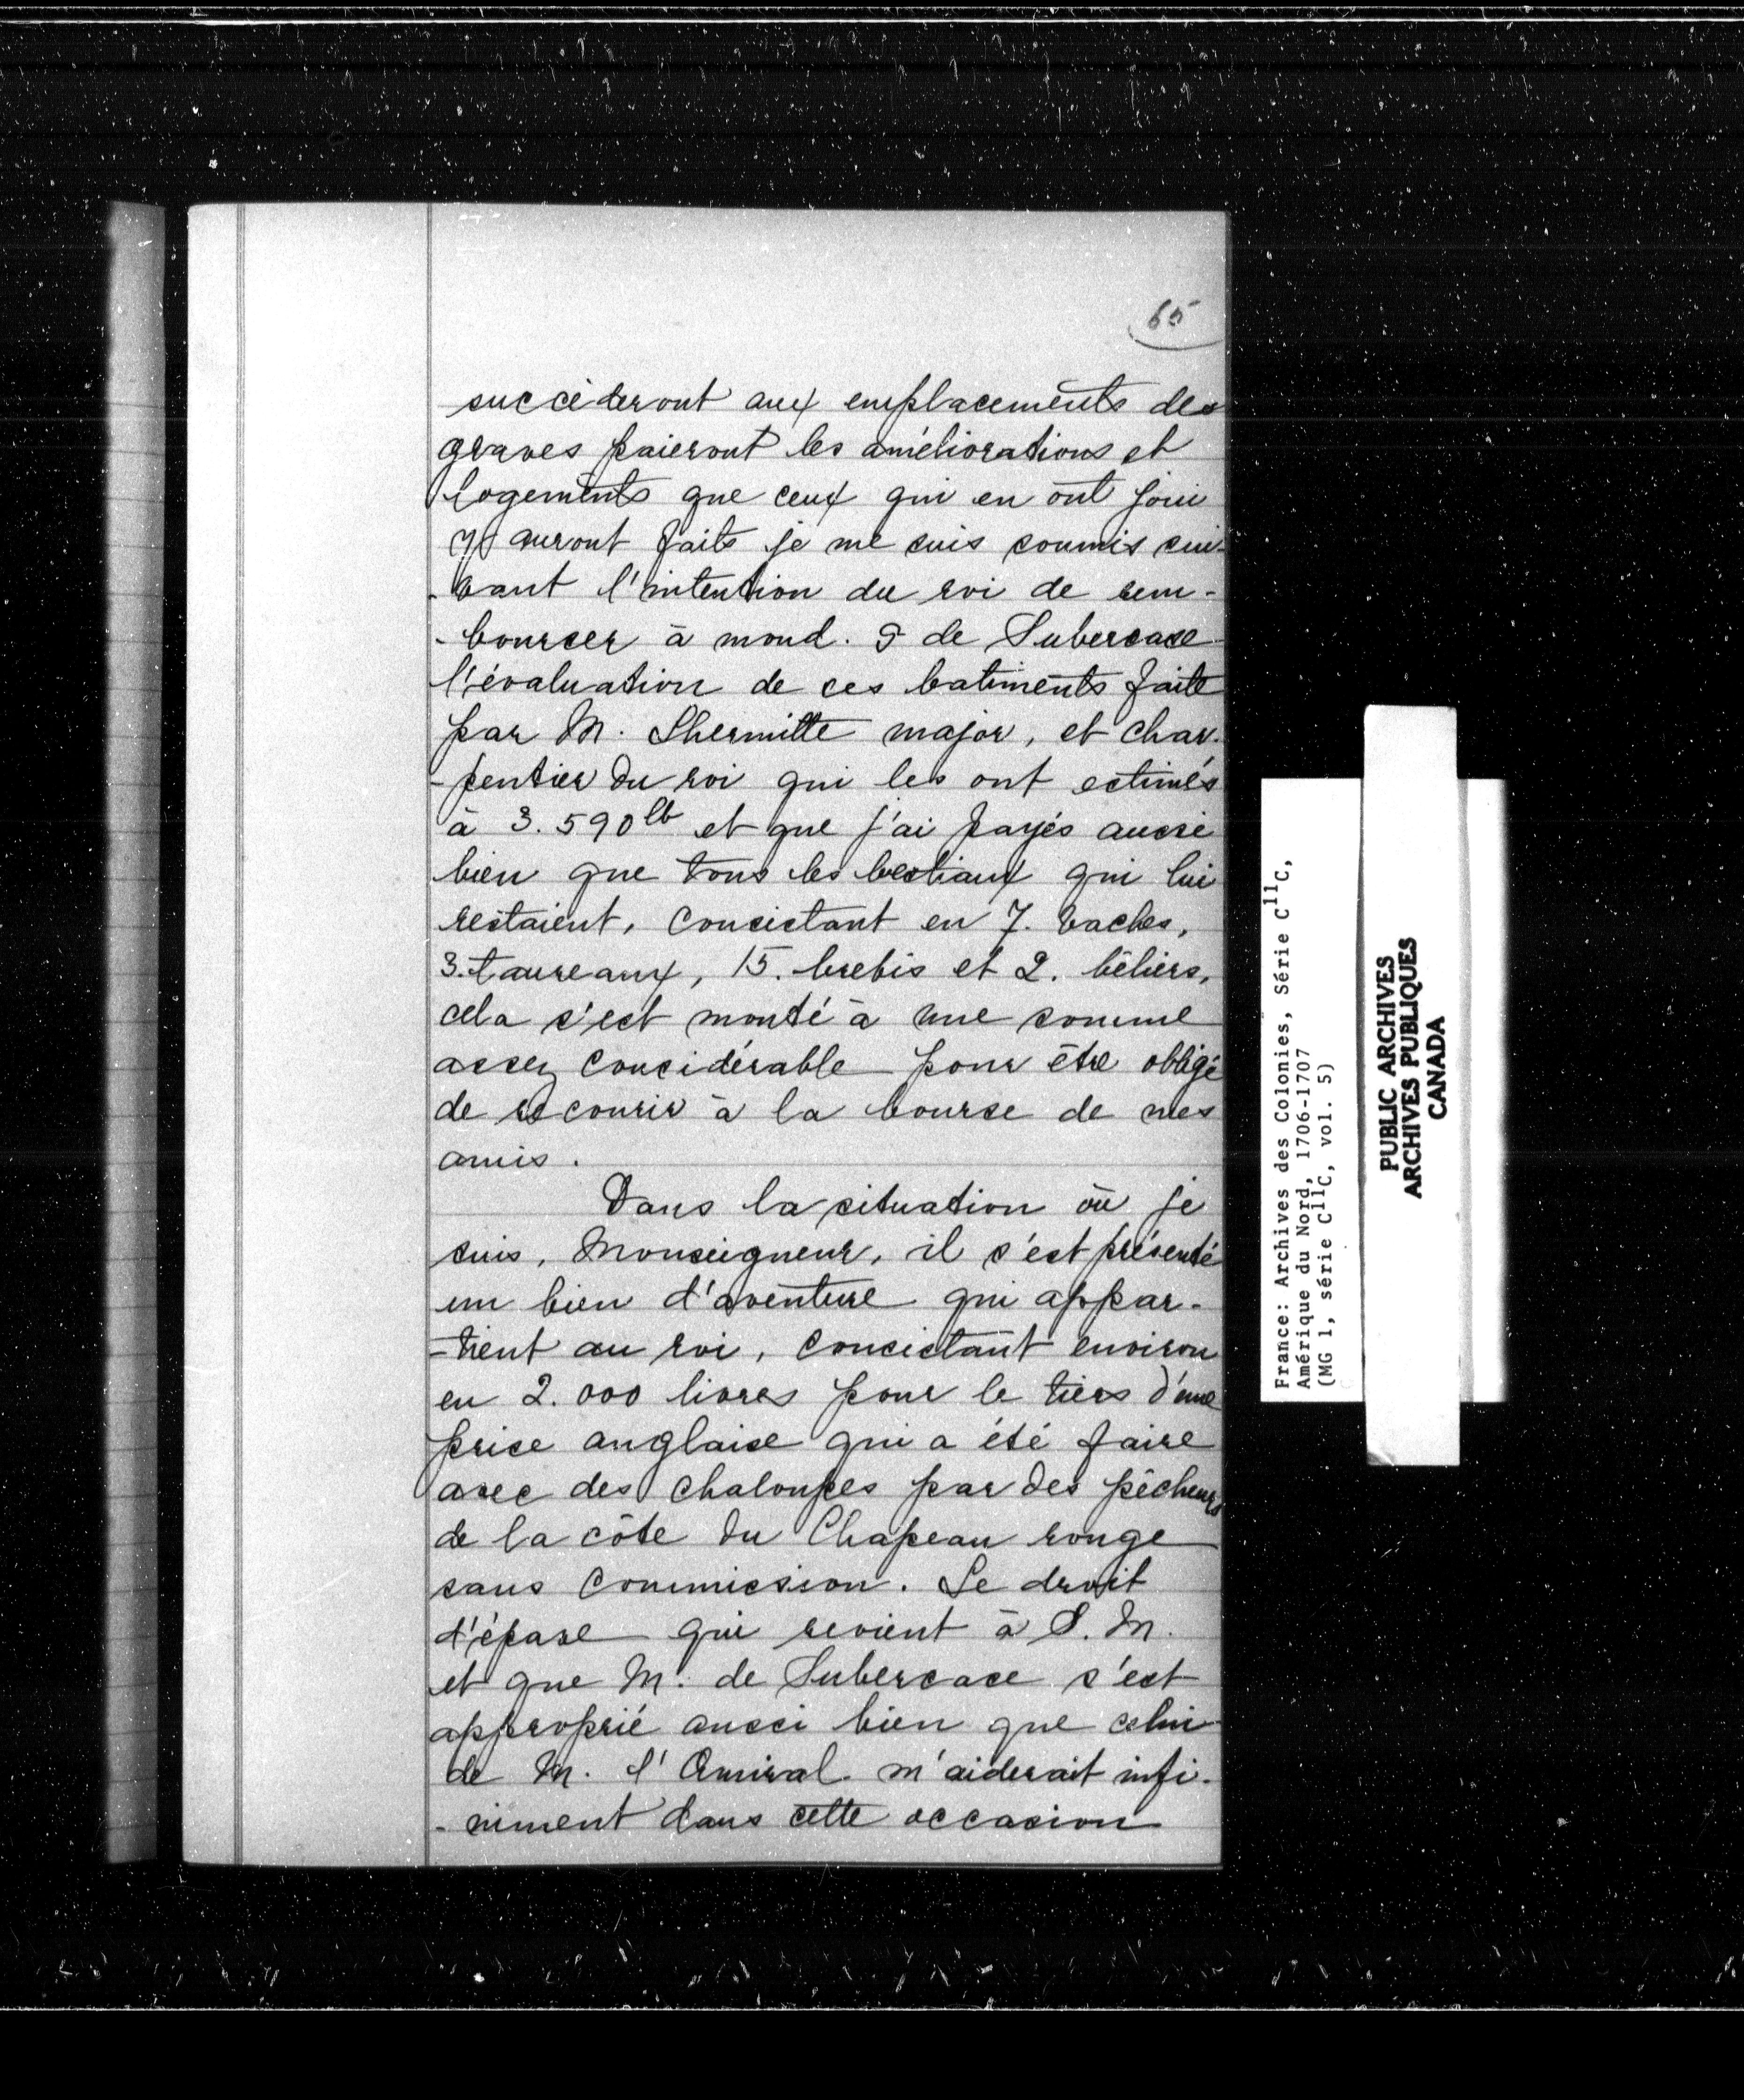 65
succéderont aux emplacements des
graves paieront les améliorations et
logements que ceux qui en ont joui
y auront faits je me suis soumis sui-
-vant l'intention du roi de rem-
-bourser à mond. S de Subercase
l'évaluation de ces batiments faite
par M. Lhermitte major, et char-
-pentier du roi qui les ont estimés
à 3.590lt et que j'ai payés aussi
bien que tous les bestiaux qui lui
restaient, consistant en 7. vaches,
3. taureaux, 15. brebis et 2. béliers,
cela s'est monté à une somme
assez considérable pour être obligé
de recourir à la bourse de mes
amis.
Dans la situation où je
suis, Monseigneur, il s'est présenté
un bien d'aventure qui appar-
-tient au roi, consistant environ
en 2.000 livres pour le tiers d'une
prise anglaise qui a été faire
avec des chaloupes par des pêcheurs
de la côte du Chapeau rouge
sans commission. Le droit
d'épave qui revient à S. M.
et que M. de Subercase s'est
approprié aussi bien que celui
de M. l'Amiral m'aiderait infi-
-niment dans cette occasion
France: Archives des Colonies, Série C11C,
Amérique du Nord, 1706-1707
(MG 1, série C11C, vol. 5)
PUBLIC ARCHIVES
ARCHIVES PUBLIQUES
CANADA